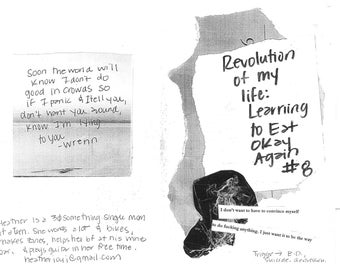 Soon the world will
know I don't do
good in crowds so
if I panic & I tell you,
don't want you 'round,
know I'm lying
to you
-wrenn
Heather is a 30 something single mom
of a teen. She works a lot & bikes,
makes zines, helps her bf at his wine
bar, & plays guitar in her free time.
@gmail.com
Revolution
of my
life:
Learning
to Eat
Okay
Again
#8
I don't want to have to convince myself
to do fucking anything; I just want it to be the way
Trigger → E.D.,